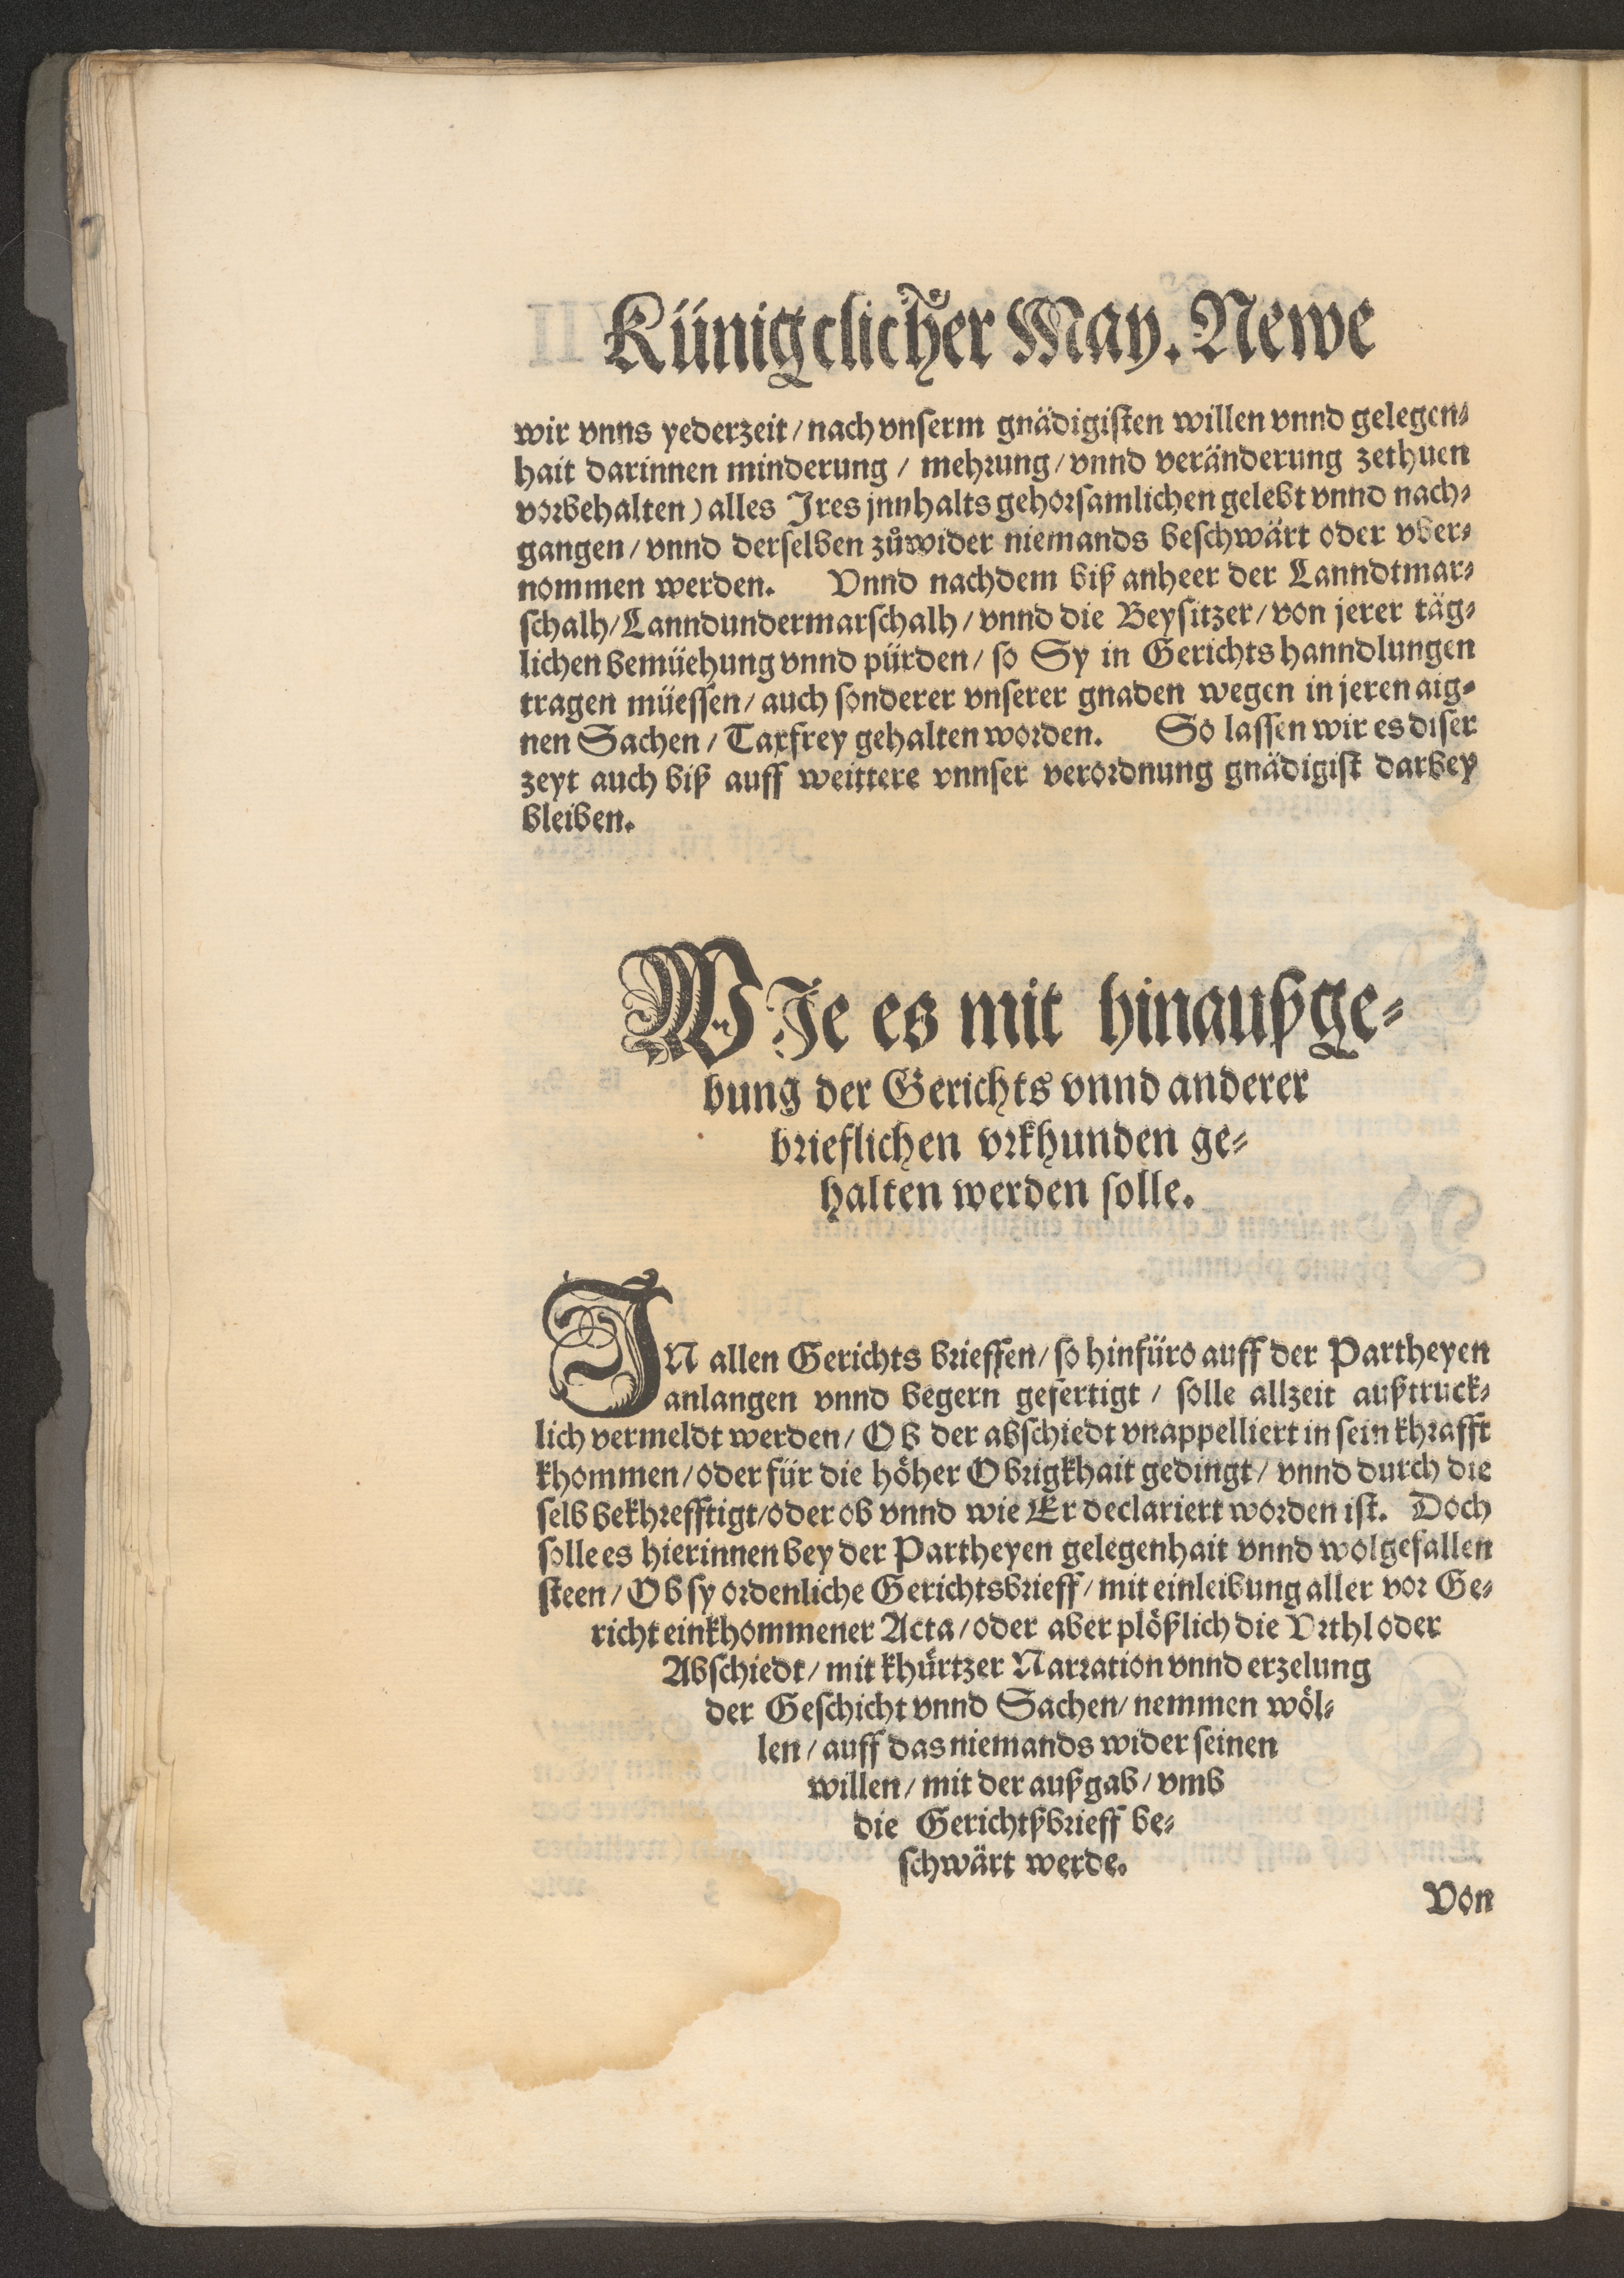 Künigclicher May. Newe
wir vnns yederzeit / nach vnserm gnädigisten willen vnnd gelegen⸗
hait darinnen minderung / mehrung / vnnd veränderung zethuen
vorbehalten) alles Jres jnnhalts gehorsamlichen gelebt vnnd nach⸗
gangen / vnnd derselben zůwider niemands beschwärt oder vber⸗
nommen werden. Vnnd nachdem biß anheer der Lanndtmar⸗
schalh / Lanndundermarschalh / vnnd die Beysitzer / von jerer täg⸗
lichen bemüehung vnnd pürden / so Sy in Gerichts hanndlungen
tragen müessen / auch sonderer vnserer gnaden wegen in jeren aig⸗
nen Sachen / Taxfrey gehalten worden. So lassen wir es diser
zeyt auch biß auff weittere vnnser verordnung gnädigist darbey
bleiben.
WJe es mit hinaußge⸗
bung der Gerichts vnnd anderer
brieflichen vrkhunden ge⸗
halten werden solle.
JN allen Gerichts brieffen / so hinfüro auff der Partheyen
anlangen vnnd begern gefertigt / solle allzeit außtruck⸗
lich vermeldt werden / Ob der abschiedt vnappelliert in sein khrafft
khommen / oder für die höher Obrigkhait gedingt / vnnd durch die
selb bekhrefftigt / oder ob vnnd wie Er declariert worden ist. Doch
solle es hierinnen bey der Partheyen gelegenhait vnnd wolgefallen
steen / Ob sy ordenliche Gerichtsbrieff / mit einleibung aller vor Ge⸗
richt einkhommener Acta / oder aber plößlich die Vrthl oder
Abschiedt / mit khürtzer Narration vnnd erzelung
der Geschicht vnnd Sachen / nemmen wöl⸗
len / auff das niemands wider seinen
willen / mit der außgab / vmb
die Gerichtßbrieff be⸗
schwärt werde.
Von